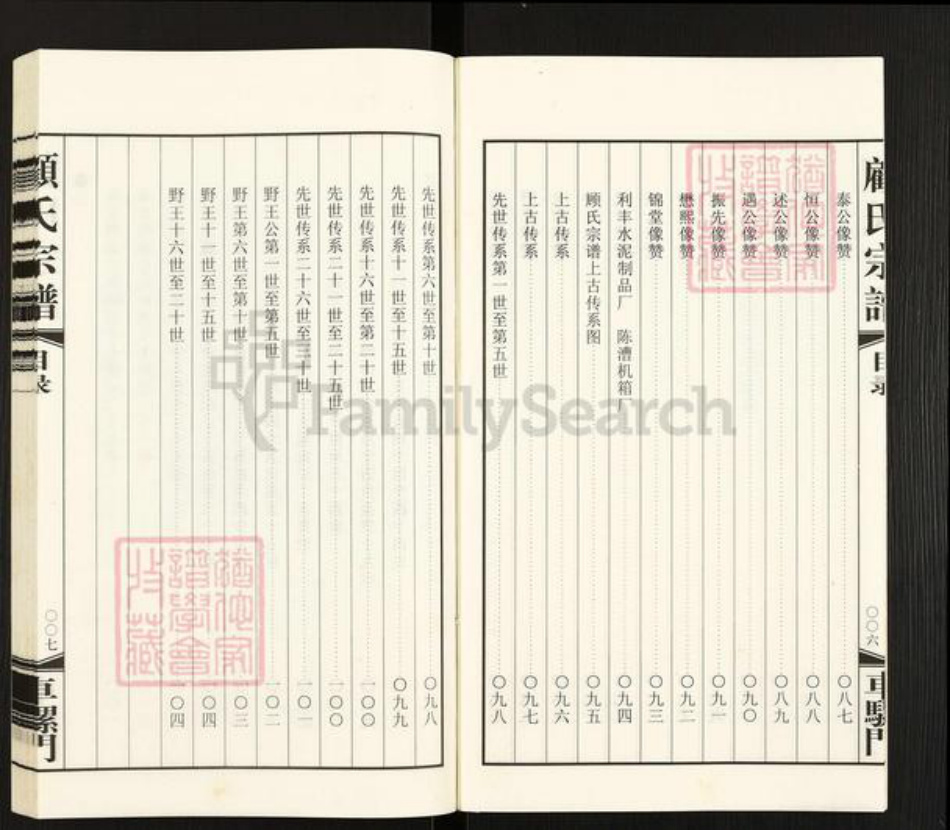 顾氏宗谱
目录
〇〇六
泰公像赞 〇八七
恒公像赞 〇八八
述公像赞 〇八九
遇公像赞 〇九〇
振先像赞 〇九一
懋熙像赞 〇九二
锦堂像赞 〇九三
利丰水泥制品厂 陈漕机箱厂 〇九四
顾氏宗谱上古传系图 〇九五
上古传系 〇九六
上古传系 〇九七
先世传系第一世至第五世 〇九八
先世传系第六世至第十世 〇九八
先世传系十一世至十五世 〇九九
先世传系十六世至第二十世 一〇〇
先世传系二十一世至二十五世 一〇〇
先世传系二十六世至三十世 一〇一
野王公第一世至第五世 一〇二
野王第六世至第十世 一〇三
野王十一世至十五世 一〇四
野王十六世至二十世 一〇四
氏宗譜
目录
〇〇七
FamilySearch